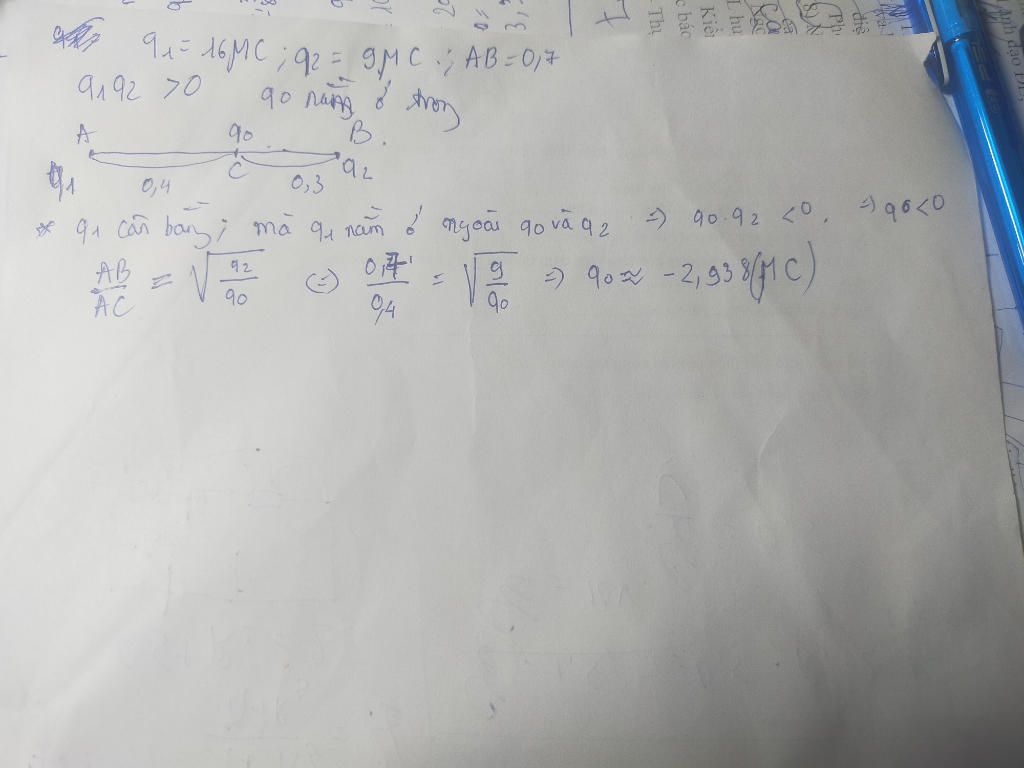 q1 = 16μC ; q2 = 9μC ; AB = 0,7
q1q2 > 0 q0 nằm ở trong
A q0 B
q1 0,4 C 0,3 q2
* q1 cân bằng ; mà q1 nằm ở ngoài q0 và q2 => q0.q2 < 0. => q0 < 0
AB/AC = √(q2/q0) (=) 0,7/0,4 = √(9/q0) => q0 ≈ -2,938(μC)